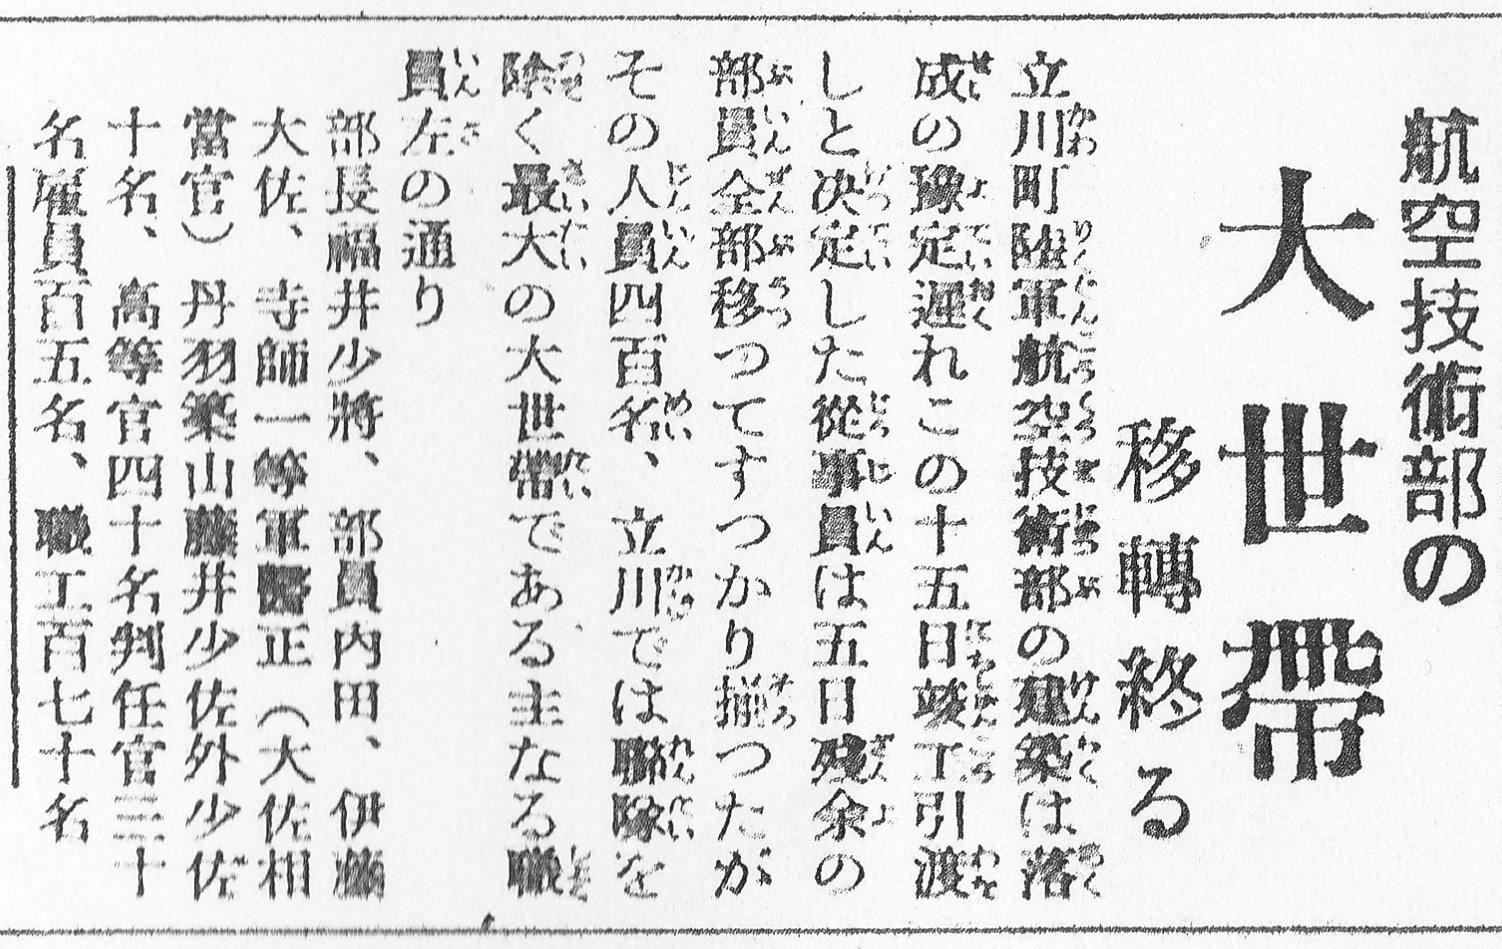 航空技術部の
大世帶
移轉終る
立川町陸軍航空技術部の建築は落
成の豫定遲れこの十五日竣工引渡
しと決定した從事員は五日殘余の
部員全部移つてすつかり揃つたが
その人員四百名、立川では聯隊を
除く最大の大世帶である主なる職
員左の通り
部長福井少將、部員内田、伊藤
大佐、寺師一等軍醫正（大佐相
當官）丹羽築山藤井少佐外少佐
十名、高等官四十名判任官三十
名雇員百五名、職工百七十名